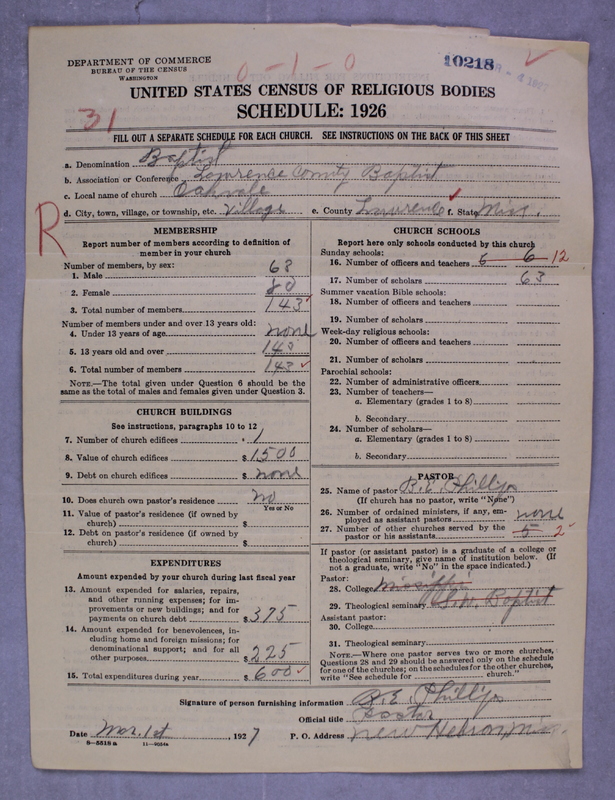 DEPARTMENT OF COMMERCE
BUREAU OF THE CENSUS
WASHINGTON
0-1-0
10218
UNITED STATES CENSUS OF RELIGIOUS BODIES
SCHEDULE: 1926
31
FILL OUT A SEPARATE SCHEDULE FOR EACH CHURCH. SEE INSTRUCTIONS ON THE BACK OF THIS SHEET
a. Denomination Baptist
b. Association or Conference Lawrence County Baptist
c. Local name of church Oakvale
d. City, town, village, or township, etc. Village e. County Lawrence f. State Miss.
R
MEMBERSHIP
Report number of members according to definition of member in your church
Number of members, by sex:
1. Male 63
2. Female 80
3. Total number of members 143
Number of members under and over 13 years old:
4. Under 13 years of age none
5. 13 years old and over 143
6. Total number of members 143
NOTE.—The total given under Question 6 should be the same as the total of males and females given under Question 3.
CHURCH BUILDINGS
See instructions, paragraphs 10 to 12
7. Number of church edifices 1
8. Value of church edifices $ 1500
9. Debt on church edifices $ none
10. Does church own pastor's residence no
Yes or No
11. Value of pastor's residence (if owned by church) $
12. Debt on pastor's residence (if owned by church) $
EXPENDITURES
Amount expended by your church during last fiscal year
13. Amount expended for salaries, repairs, and other running expenses; for improvements or new buildings; and for payments on church debt $ 375
14. Amount expended for benevolences, including home and foreign missions; for denominational support; and for all other purposes $ 225
15. Total expenditures during year $ 600
CHURCH SCHOOLS
Report here only schools conducted by this church
Sunday schools:
16. Number of officers and teachers 6 6 12
17. Number of scholars 63
Summer vacation Bible schools:
18. Number of officers and teachers
19. Number of scholars
Week-day religious schools:
20. Number of officers and teachers
21. Number of scholars
Parochial schools:
22. Number of administrative officers
23. Number of teachers—
a. Elementary (grades 1 to 8)
b. Secondary
24. Number of scholars—
a. Elementary (grades 1 to 8)
b. Secondary
PASTOR
25. Name of pastor B. E. Phillips
(If church has no pastor, write "None")
26. Number of ordained ministers, if any, employed as assistant pastors none
27. Number of other churches served by the pastor or his assistants 5 2
If pastor (or assistant pastor) is a graduate of a college or theological seminary, give name of institution below. (If not a graduate, write "No" in the space indicated.)
Pastor:
28. College
29. Theological seminary S.W. Baptist
Assistant pastor:
30. College
31. Theological seminary
NOTE.—Where one pastor serves two or more churches, Questions 28 and 29 should be answered only on the schedule for one of the churches; on the schedules for the other churches, write "See schedule for church."
Signature of person furnishing information B. E. Phillips
Official title Pastor
Date Mar. 1st, 1927 P. O. Address New Hebron, Miss.
8-5518a 11-9034a